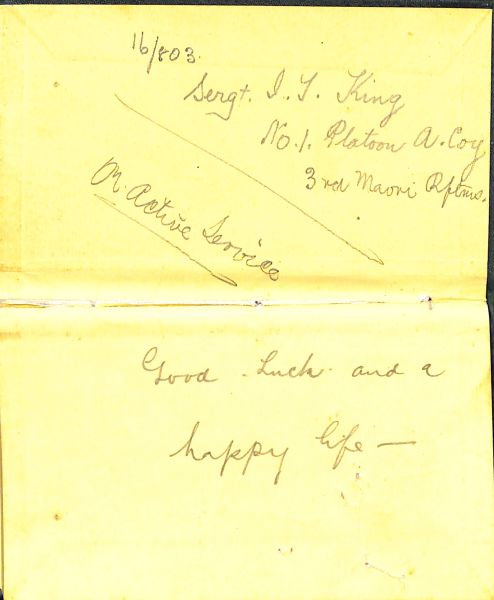 16/803.
Sergt. I. T. King
No.1. Platoon A. Coy
3rd Maori Rftms.
On Active Service
Good Luck and a
happy life —